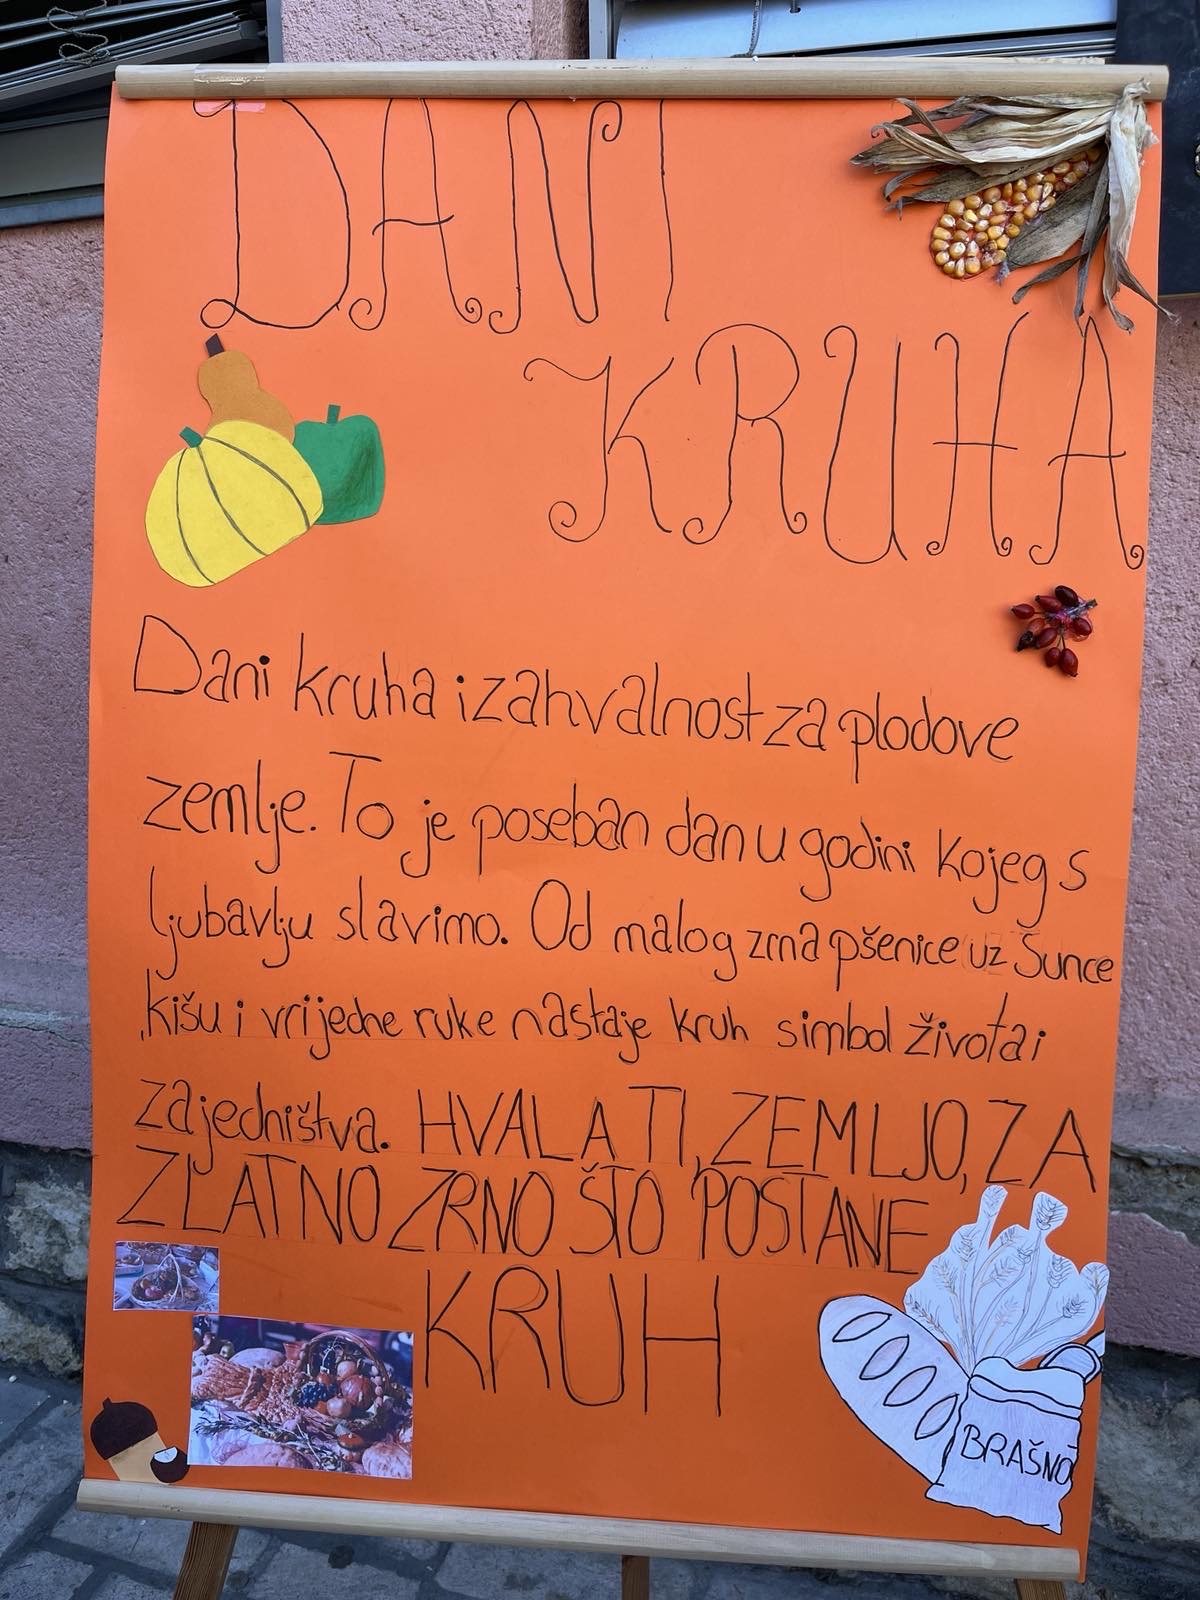 DANI
KRUHA
Dani kruha i zahvalnost za plodove
zemlje. To je poseban dan u godini kojeg s
ljubavlju slavimo. Od malog zrna pšenice uz Sunce
kišu i vrijedne ruke nastaje kruh simbol života i
zajedništva. HVALA TI, ZEMLJO, ZA
ZLATNO ZRNO ŠTO POSTANE
KRUH
BRAŠNO